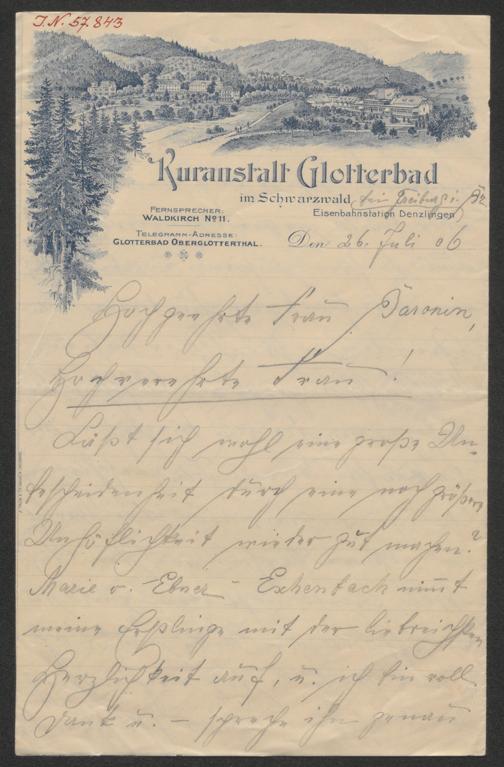 I.N. 57.843
Kuranstalt Glotterbad
im Schwarzwald, bei Freiburg i. Br.
Eisenbahnstation Denzlingen
FERNSPRECHER:
WALDKIRCH No 11.
TELEGRAMM-ADRESSE:
GLOTTERBAD OBERGLOTTERTHAL.
Den 26. Juli 06
Hochgeehrte Frau Baronin,
Hochverehrte Frau!
Läßt sich wohl eine große Un-
bescheidenheit durch eine noch größere
Unhöflichkeit wieder gut machen?
Marie v. Ebner-Eschenbach nimmt
meine Erstlinge mit der liebreichsten
Herzlichkeit auf, u. ich bin voll
Dank u. – spreche ihn genau